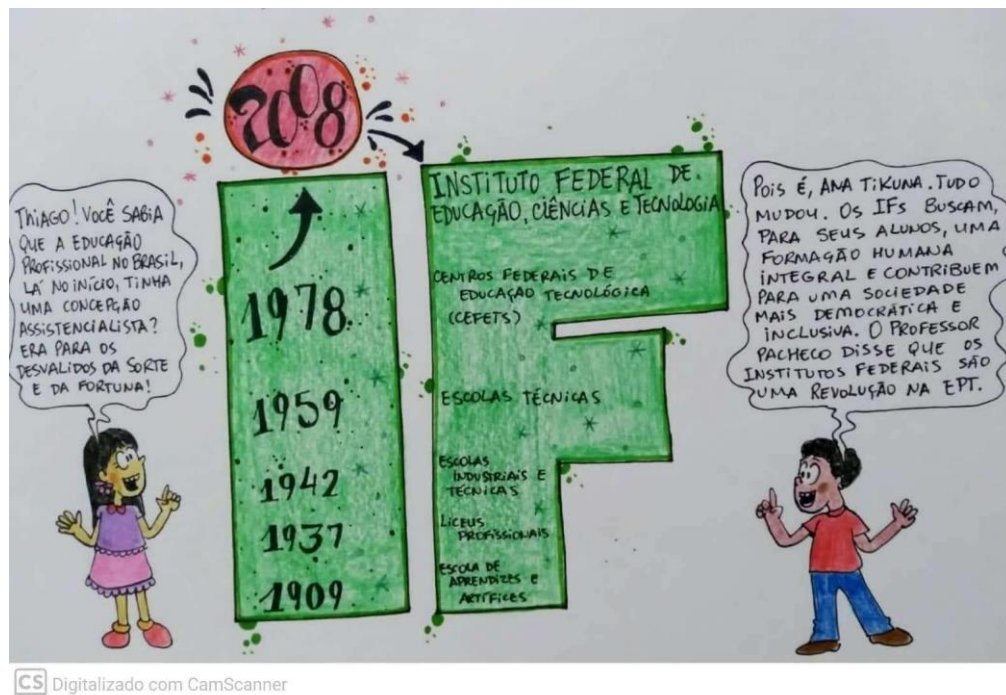 THIAGO! VOCÊ SABIA
QUE A EDUCAÇÃO
PROFISSIONAL NO BRASIL,
LÁ NO INÍCIO, TINHA
UMA CONCEPÇÃO
ASSISTENCIALISTA?
ERA PARA OS
DESVALIDOS DA SORTE
E DA FORTUNA!
2008
1978
1959
1942
1937
1909
INSTITUTO FEDERAL DE
EDUCAÇÃO, CIÊNCIAS E TECNOLOGIA
CENTROS FEDERAIS DE
EDUCAÇÃO TECNOLÓGICA
(CEFETS)
ESCOLAS TÉCNICAS
ESCOLAS
INDUSTRIAIS E
TÉCNICAS
LICEUS
PROFISSIONAIS
ESCOLA DE
APRENDIZES E
ARTÍFICES
POIS É, ANA TIKUNA. TUDO
MUDOU. OS IFs BUSCAM,
PARA SEUS ALUNOS, UMA
FORMAÇÃO HUMANA
INTEGRAL E CONTRIBUEM
PARA UMA SOCIEDADE
MAIS DEMOCRÁTICA E
INCLUSIVA. O PROFESSOR
PACHECO DISSE QUE OS
INSTITUTOS FEDERAIS SÃO
UMA REVOLUÇÃO NA EPT.
CS Digitalizado com CamScanner